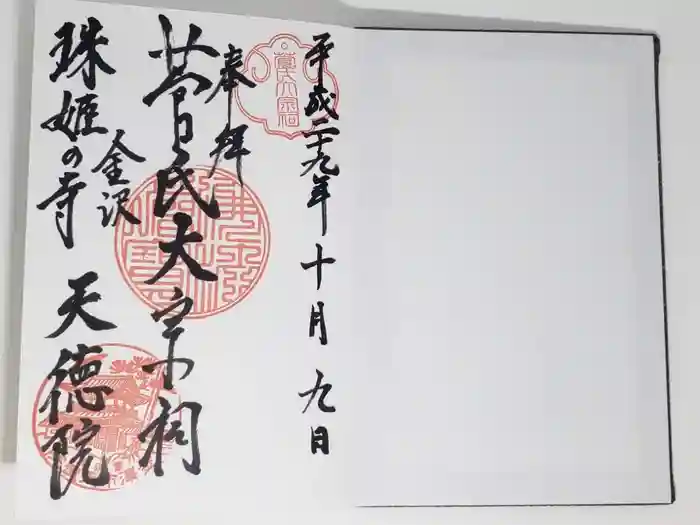 平成二十九年十月九日
奉拝
菅氏大宗祠
金沢
珠姫の寺 天徳院